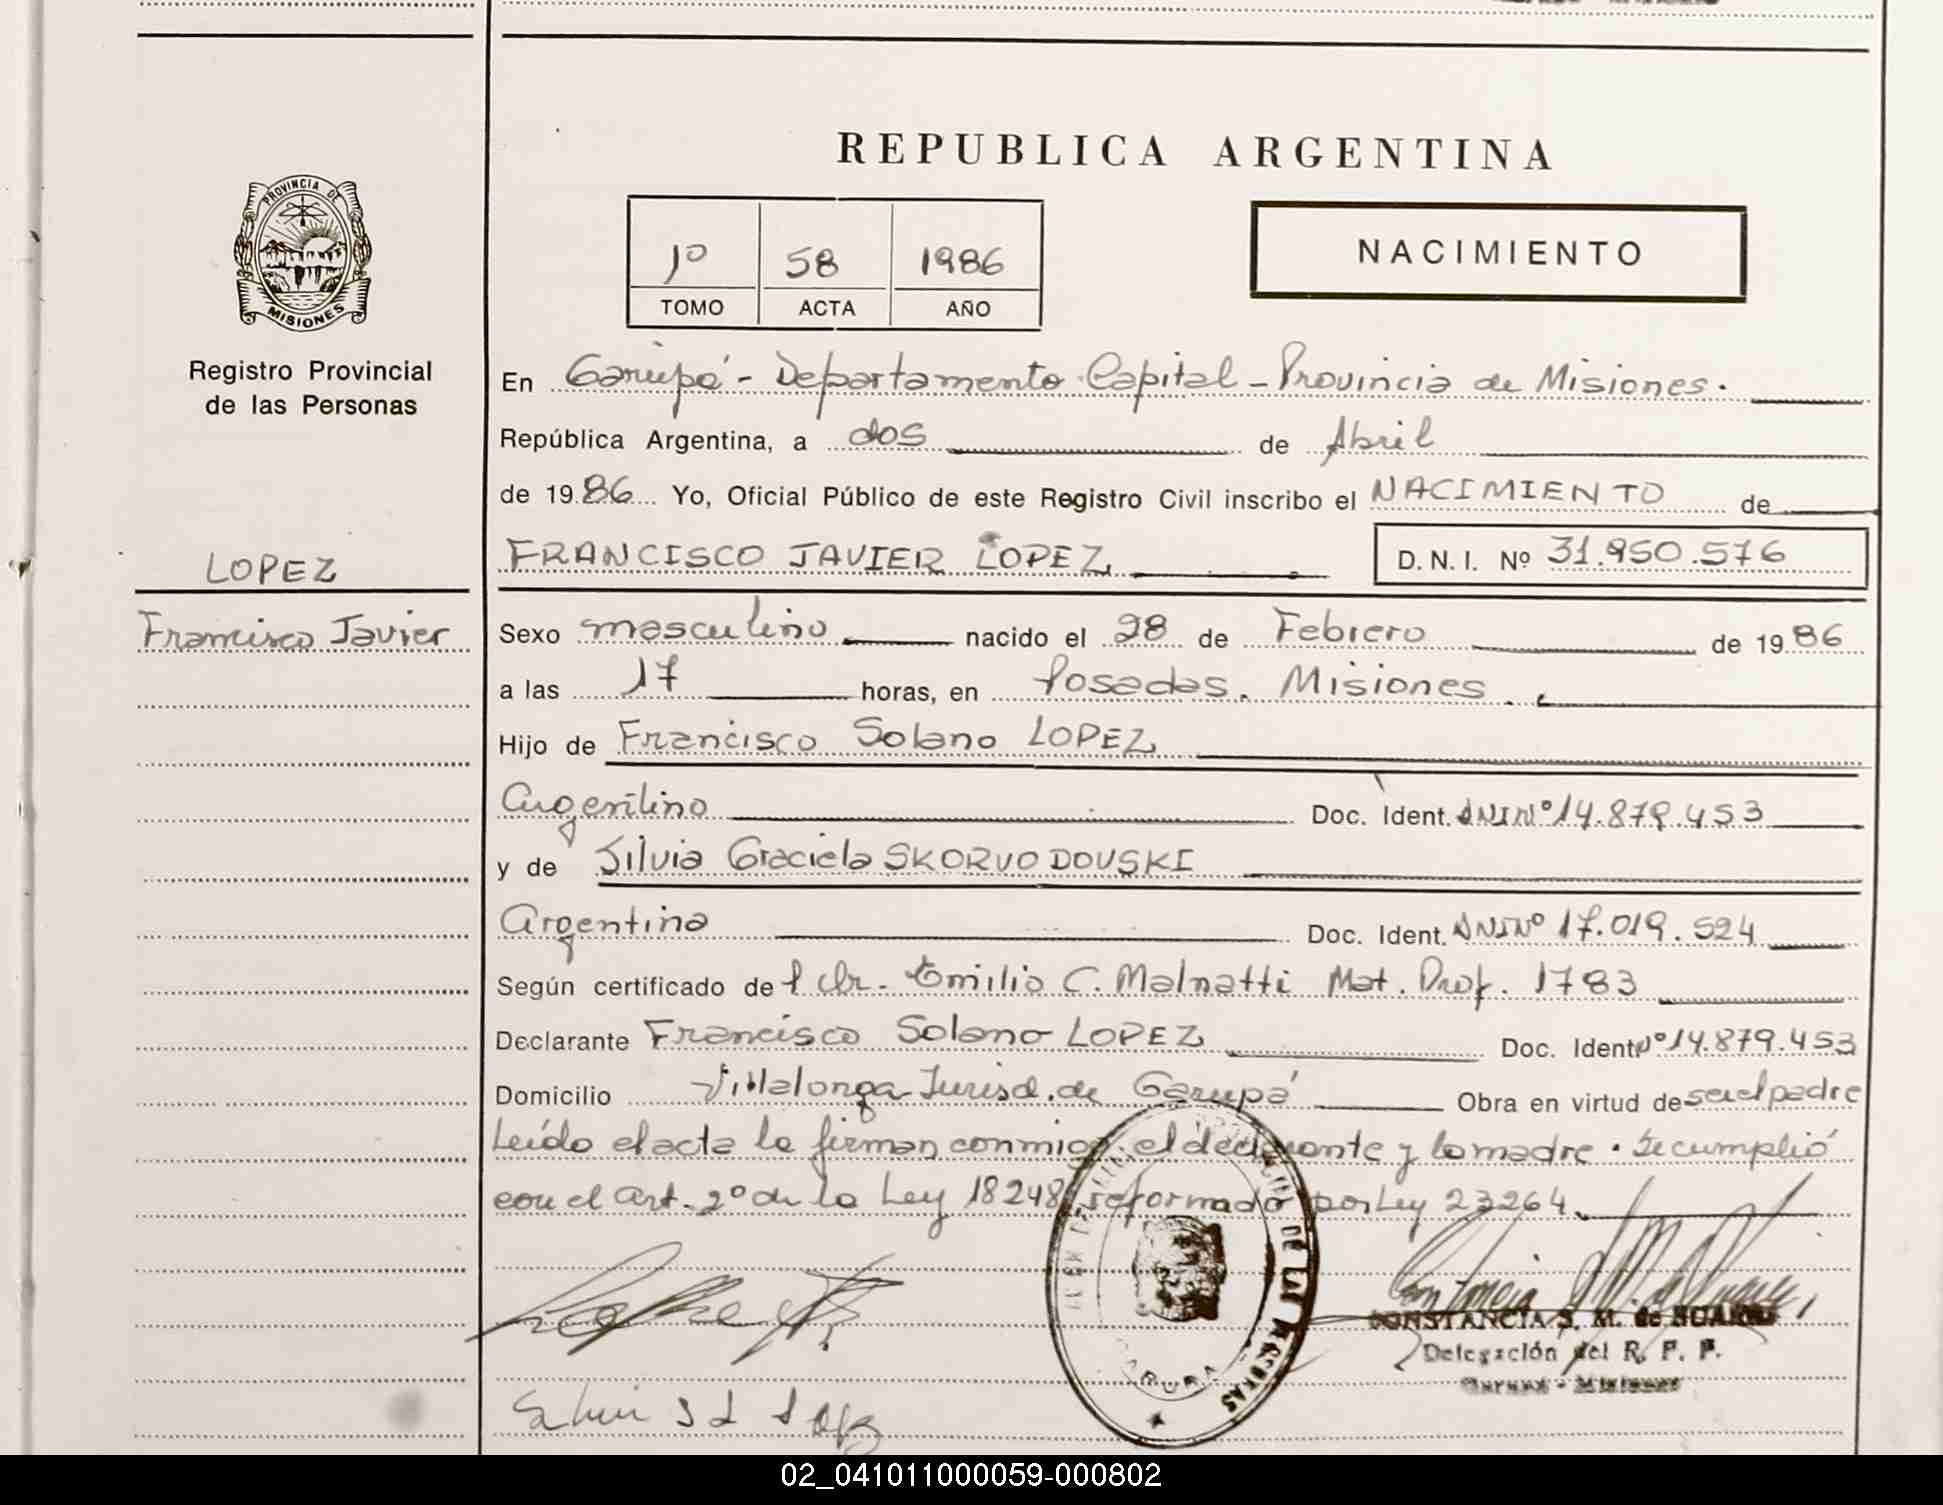 REPUBLICA ARGENTINA
PROVINCIA DE
MISIONES
Registro Provincial
de las Personas
1º 58 1986
TOMO ACTA AÑO
NACIMIENTO
En Garupá - Departamento Capital - Provincia de Misiones.
República Argentina, a dos de Abril
de 1986 Yo, Oficial Público de este Registro Civil inscribo el NACIMIENTO de
LOPEZ
Francisco Javier
FRANCISCO JAVIER LOPEZ D.N.I. Nº 31.950.576
Sexo masculino nacido el 28 de Febrero de 1986
a las 17 horas, en Posadas. Misiones.
Hijo de Francisco Solano LOPEZ
Argentino Doc. Ident. DNI Nº 14.879.453
y de Silvia Graciela SKORVODOVSKI
Argentina Doc. Ident. DNI Nº 17.019.524
Según certificado del dr. Emilio C. Malnatti Mat. Prof. 1783
Declarante Francisco Solano LOPEZ Doc. Ident Nº 14.879.453
Domicilio Villalonga Jurisd. de Garupá Obra en virtud de ser el padre
Leído el acta la firman conmigo el declarante y la madre. Se cumplió
con el art. 2º de la Ley 18248 reformado por Ley 23264.
DE LAS PERSONAS
CONSTANCIA S. M. de SUAREZ
Delegación del R. P. P.
Garupá - Misiones
02_041011000059-000802